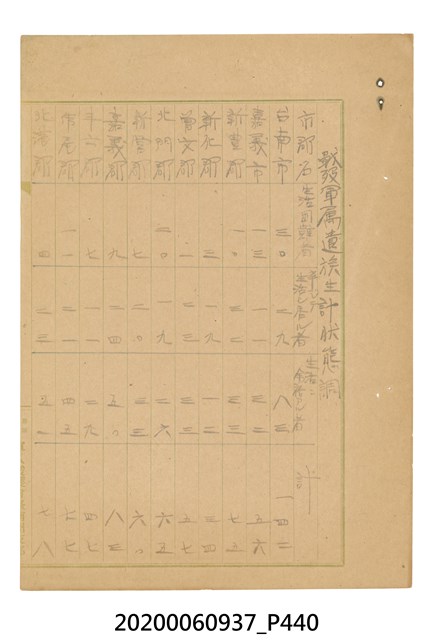 軍属遺族生計狀態調
市郡名 生活困難者 生活シ居ル者 生活ニ余裕 者 計
台南市 三〇 二九 八三 一四二
嘉義市 一三 一一 三二 五六
新豊郡 一〇 三二 三三 七五
新化郡 三 一九 一二 三四
曾文郡 五七
北門郡 二〇 一九 二六 六五
新営郡 七 二〇 三三 六〇
嘉義郡 九 二四 五〇 八三
斗六郡 七 一一 二九 四七
虎尾郡 一一 二一 四五 七七
北港郡 四 二三 五一 七八
20200060937_P440